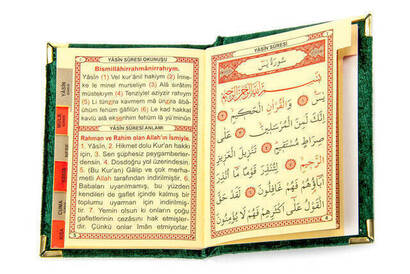 YÂSÎN SÛRESİ OKUNUŞU
Bismillâhirrahmânirrahîym.
Yâsîn (1) Vel kur'ânil hakîym (2) İnne-
ke le minel murselîyn (3) Alâ sırâtim
müstekıym (4) Tenziylel azîyzir rahîym
(5) Li tünzira kavmem mâ ünzira âbâ-
ühüm fehüm ğâfilûn (6) Le kad hakkal
kavlü alâ ekserihim fehüm lâ yü'minûn
YÂSÎN SÛRESİ ANLAMI
Rahman ve Rahim olan Allah'ın İsmiyle.
1. Yâsîn, 2. Hikmet dolu Kur'an hakkı
için, 3. Sen şüphesiz peygamberler-
densin. 4. Dosdoğru yol üzerindesin.
5. (Bu Kur'an) Gâlip ve çok merha-
metli Allah tarafından indirilmiştir. 6.
Babaları uyarılmamış, bu yüzden
kendileri de gaflet içinde kalmış bir
toplumu uyarman için indirilmiş-
tir. 7. Yemin olsun ki onların çoğu
gafletlerinin cezasını hak etmişler-
dir. Çünkü onlar îman etmiyorlar.
YÂSİN
MÜLK
NEBE
CUMA
DUA
YÂSÎN SÛRESİ
سُورَةُ يٰسٓ
بِسْمِ اللّٰهِ الرَّحْمٰنِ الرَّحِيمِ
يٰسٓ ۝ وَالْقُرْاٰنِ الْحَكِيمِ ۝
اِنَّكَ لَمِنَ الْمُرْسَلِينَ ۝ عَلٰى
صِرَاطٍ مُسْتَقِيمٍ ۝ تَنْزِيلَ الْعَزِيزِ
الرَّحِيمِ ۝ لِتُنْذِرَ قَوْمًا مَٓا اُنْذِرَ
اٰبَٓاؤُهُمْ فَهُمْ غَافِلُونَ ۝ لَقَدْ حَقَّ
الْقَوْلُ عَلٰٓى اَكْثَرِهِمْ فَهُمْ لَا يُؤْمِنُونَ